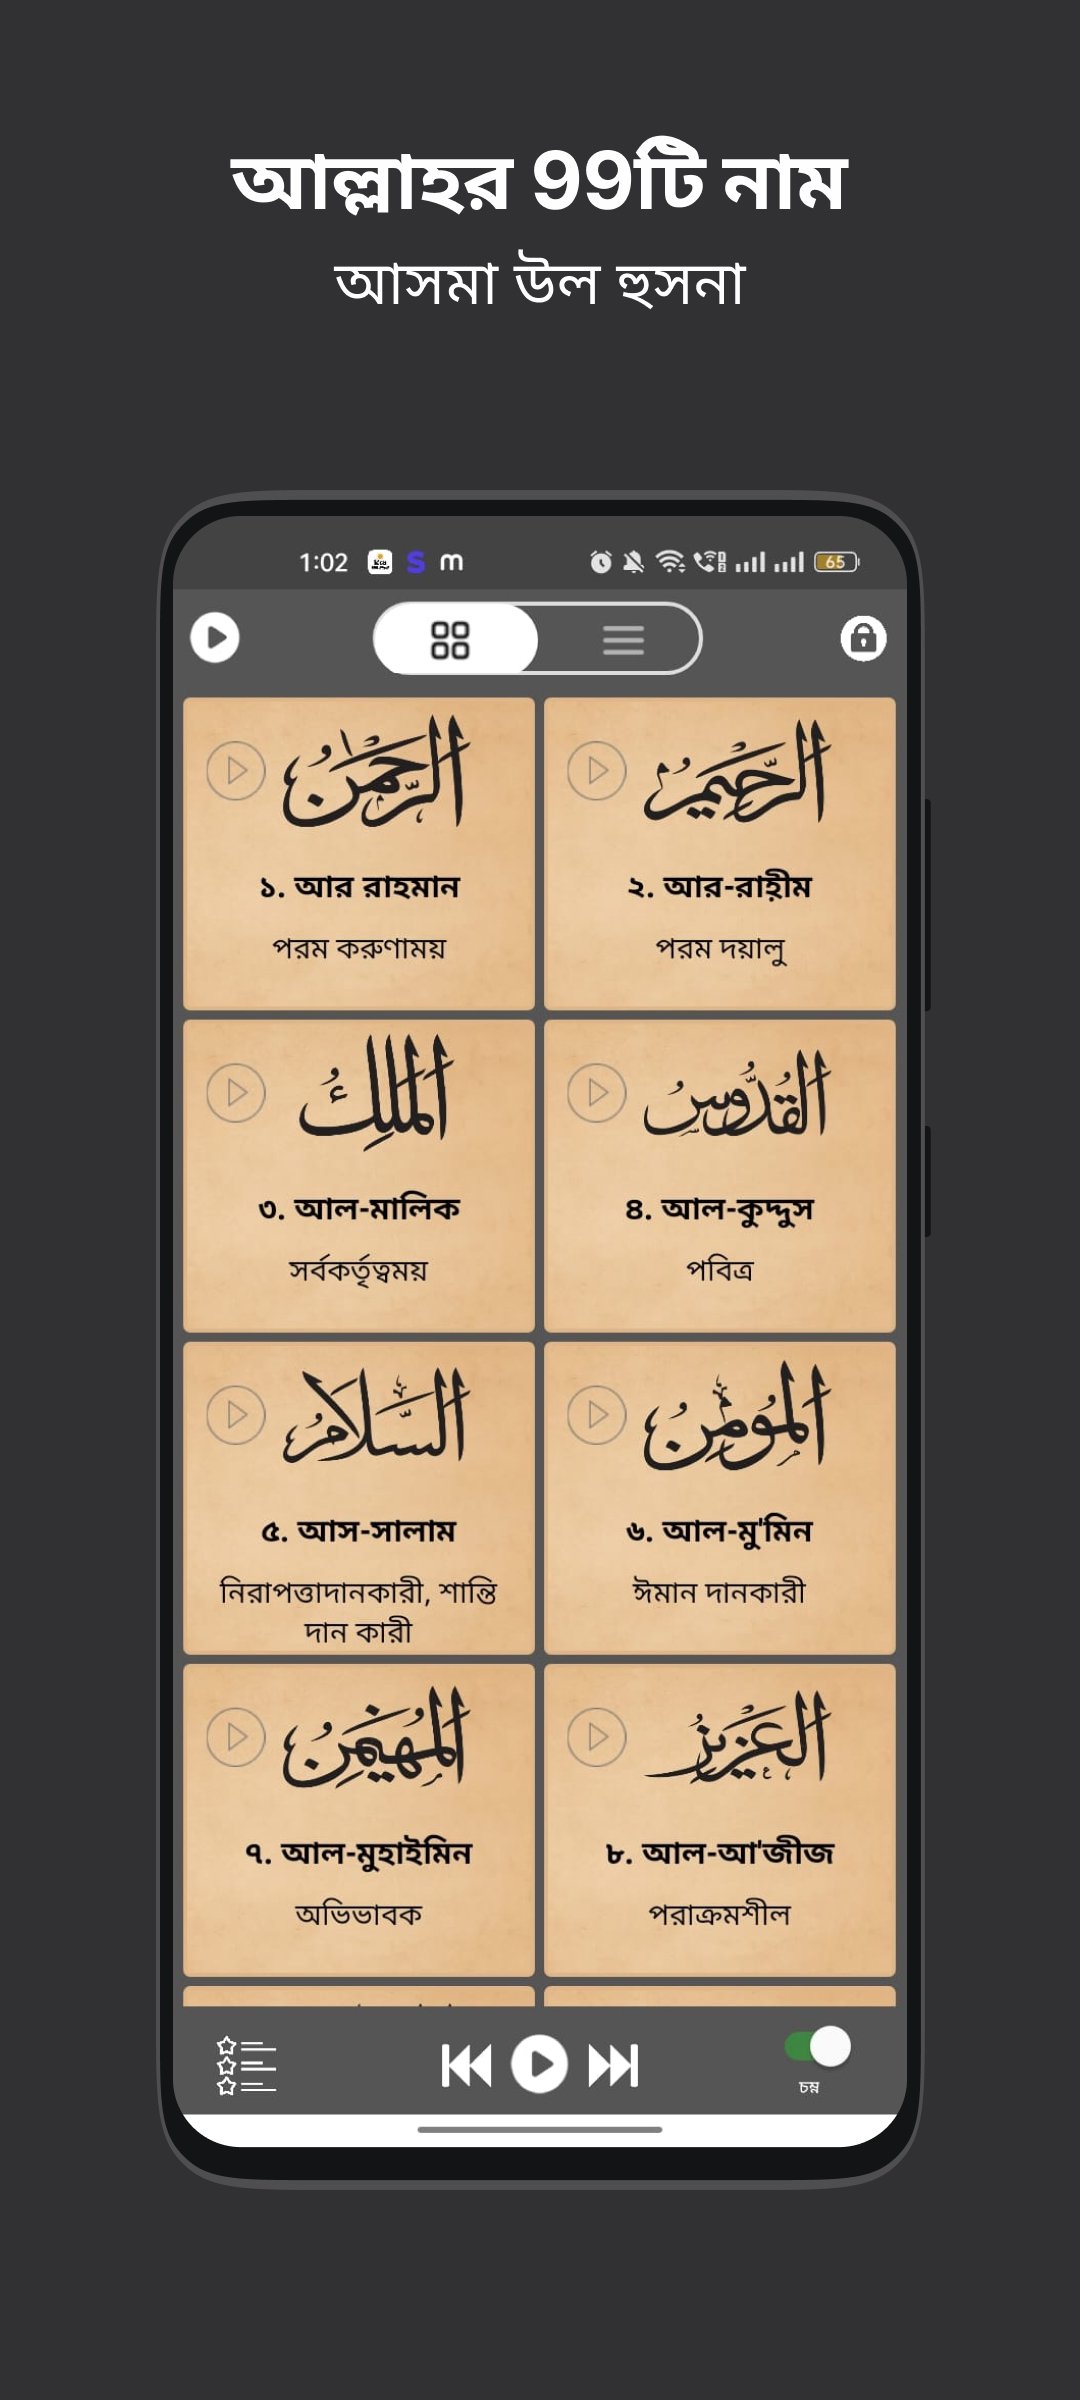 আল্লাহর 99টি নাম
আসমা উল হুসনা
1:02 S m 65
الرَّحْمَٰنُ
১. আর রাহমান
পরম করুণাময়
الرَّحِيمُ
২. আর-রাহ়ীম
পরম দয়ালু
الْمَلِكُ
৩. আল-মালিক
সর্বকর্তৃত্বময়
الْقُدُّوسُ
৪. আল-কুদ্দুস
পবিত্র
السَّلَامُ
৫. আস-সালাম
নিরাপত্তাদানকারী, শান্তি
দান কারী
الْمُؤْمِنُ
৬. আল-মু'মিন
ঈমান দানকারী
الْمُهَيْمِنُ
৭. আল-মুহাইমিন
অভিভাবক
الْعَزِيزُ
৮. আল-আ'জীজ
পরাক্রমশীল